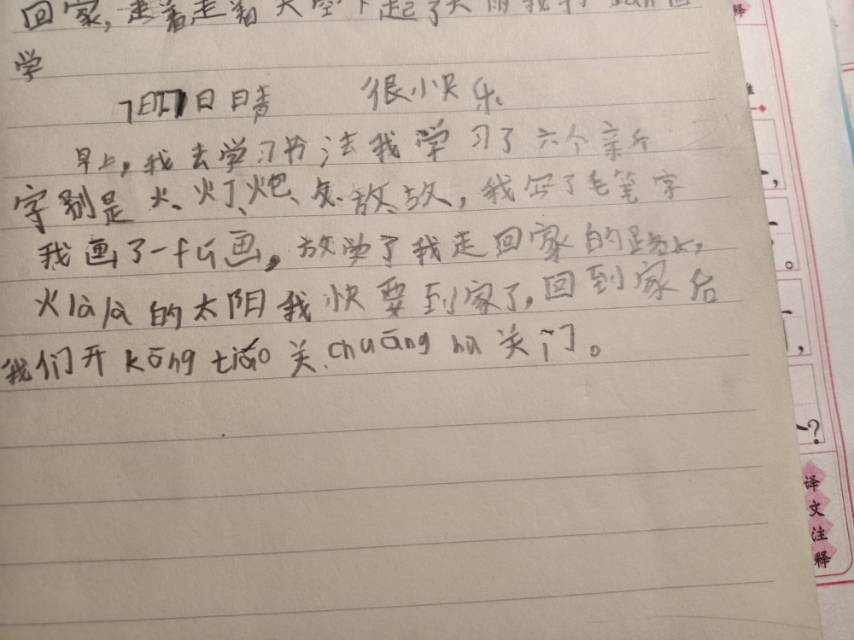 回家，走着走着天空下起了大雨我们
学
7月17日 日晴 很快乐。
早上，我去学习书法我学习了六个亲斤
字别是火、灯、炮、灰、放、故，我写了毛笔字
我画了一fú画，放学了我走回家的路上，
火là là的太阳我快要到家了，回到家后
我们开kōng tiáo关chuāng hu关门。
，
。
，
？
释
译文注释